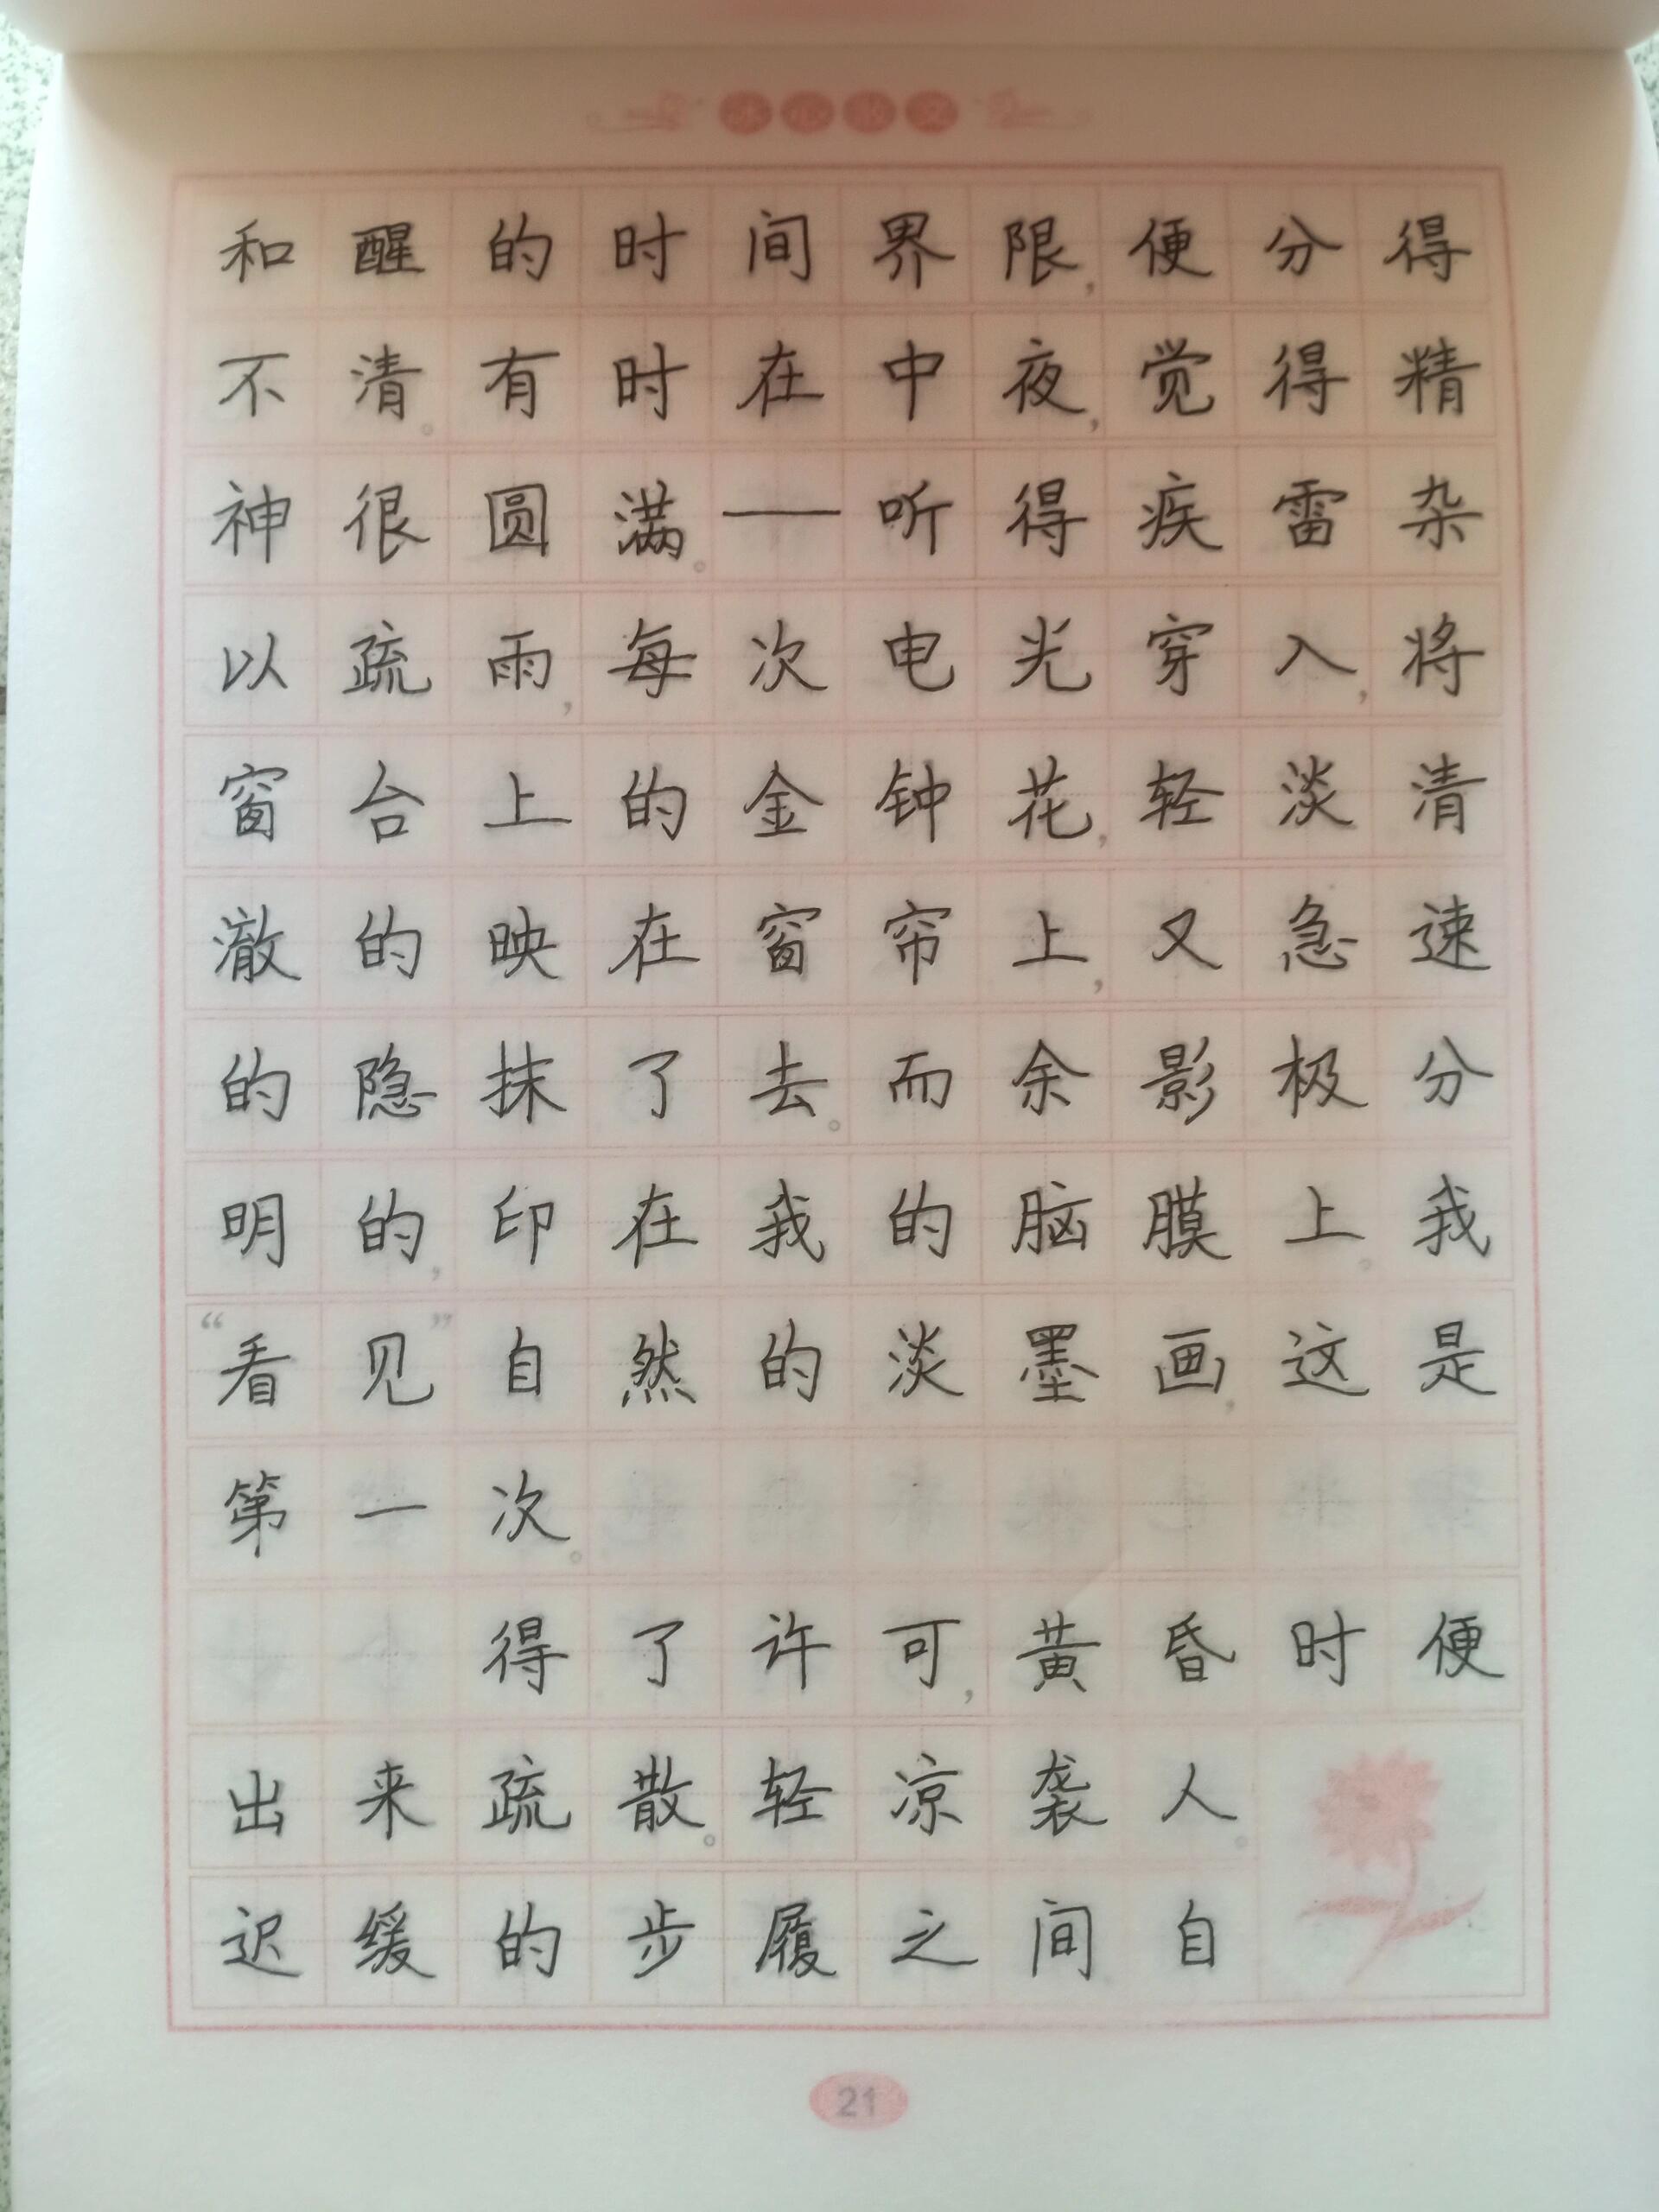 冰心散文
和醒的时间界限，便分得
不清。有时在中夜，觉得精
神很圆满。—听得疾雷杂
以疏雨，每次电光穿入，将
窗台上的金钟花，轻淡清
澈的映在窗帘上，又急速
的隐抹了去。而余影极分
明的，印在我的脑膜上。我
“看见”自然的淡墨画，这是
第一次。
得了许可，黄昏时便
出来疏散。轻凉袭人。
迟缓的步履之间自
21